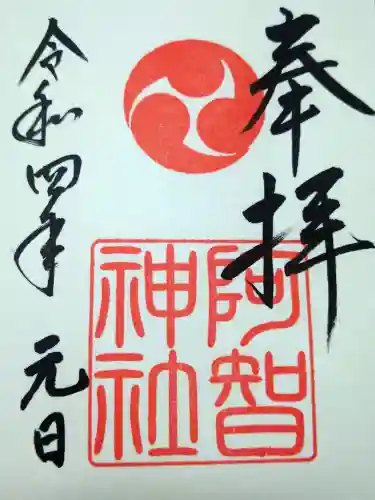 奉拝
阿智
神社
令和四年
元日